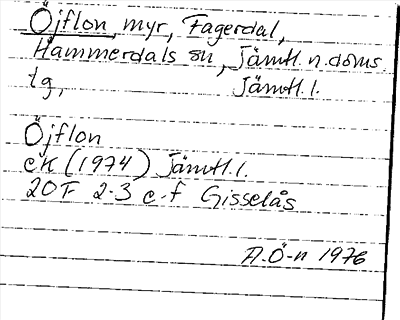 Öjflon, myr, Fagerdal,
Hammerdals sn, Jämtl. n. doms.
lg, Jämtl. l.
Öjflon
eK (1974) Jämtl. l.
20F 2-3 e-f Gisselås
A.Ö-n 1976